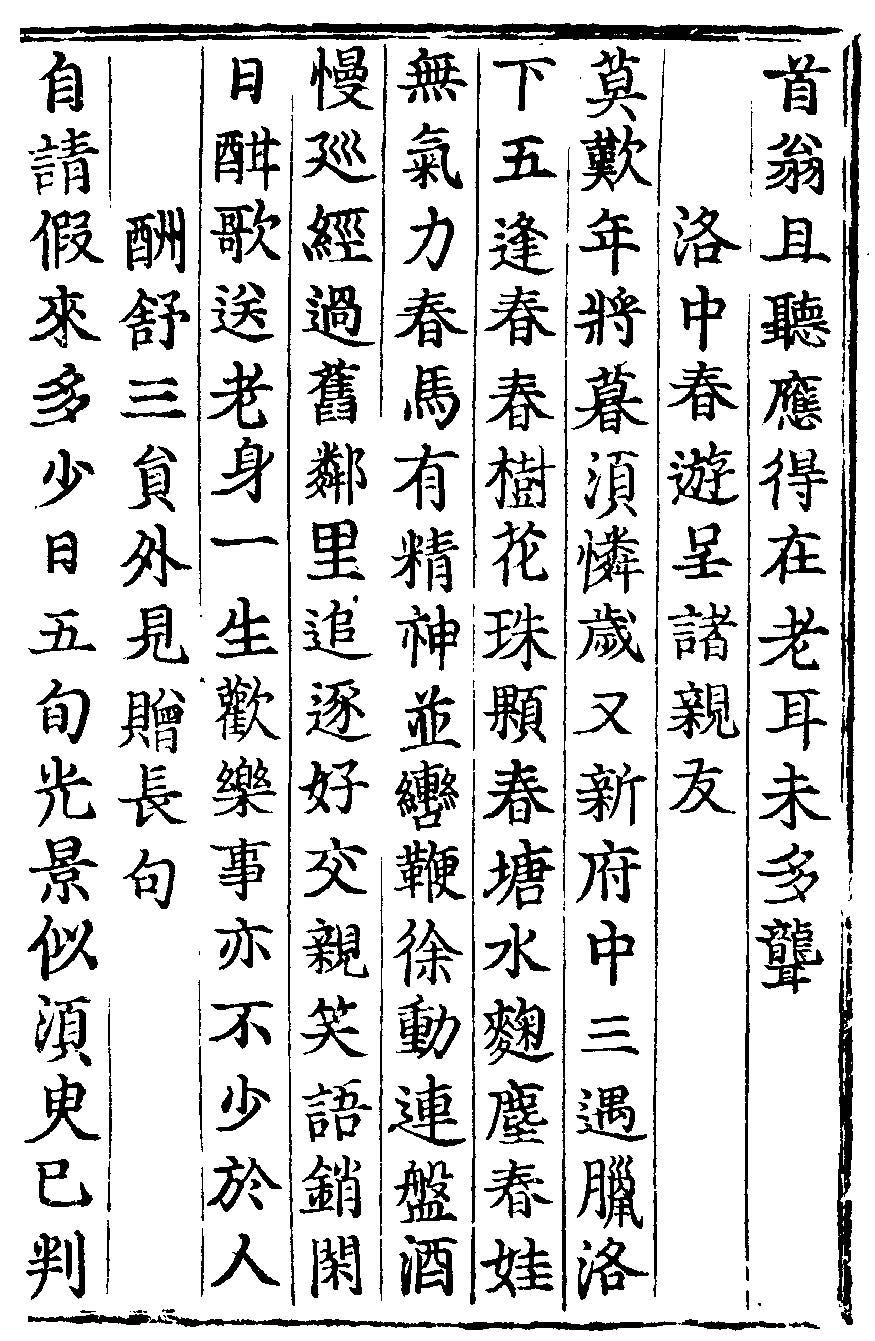 首翁且聽應得在老耳未多聾
洛中春遊呈諸親友
莫歎年將暮須憐歲又新府中三遇臘洛
下五逢春春樹花珠顆春塘水麴塵春娃
無氣力春馬有精神並轡鞭徐動連盤酒
慢廵經過舊鄰里追逐好交親笑語銷閑
日酣歌送老身一生歡樂事亦不少於人
酬舒三貟外見贈長句
自請假來多少日五旬光景似須臾已判